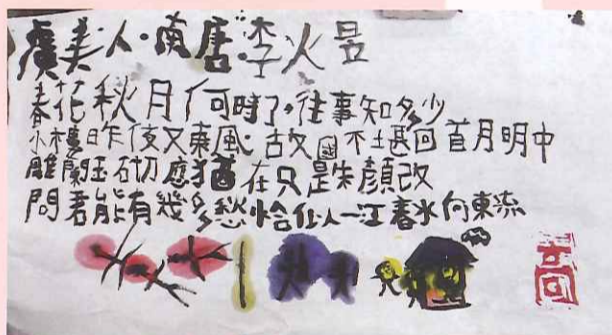 虞美人·南唐·李煜
春花秋月何時了·往事知多少
小樓昨夜又東風·故國不堪回首月明中
雕闌玉砌應猶在只是朱顏改
問君能有幾多愁恰似一江春水向東流